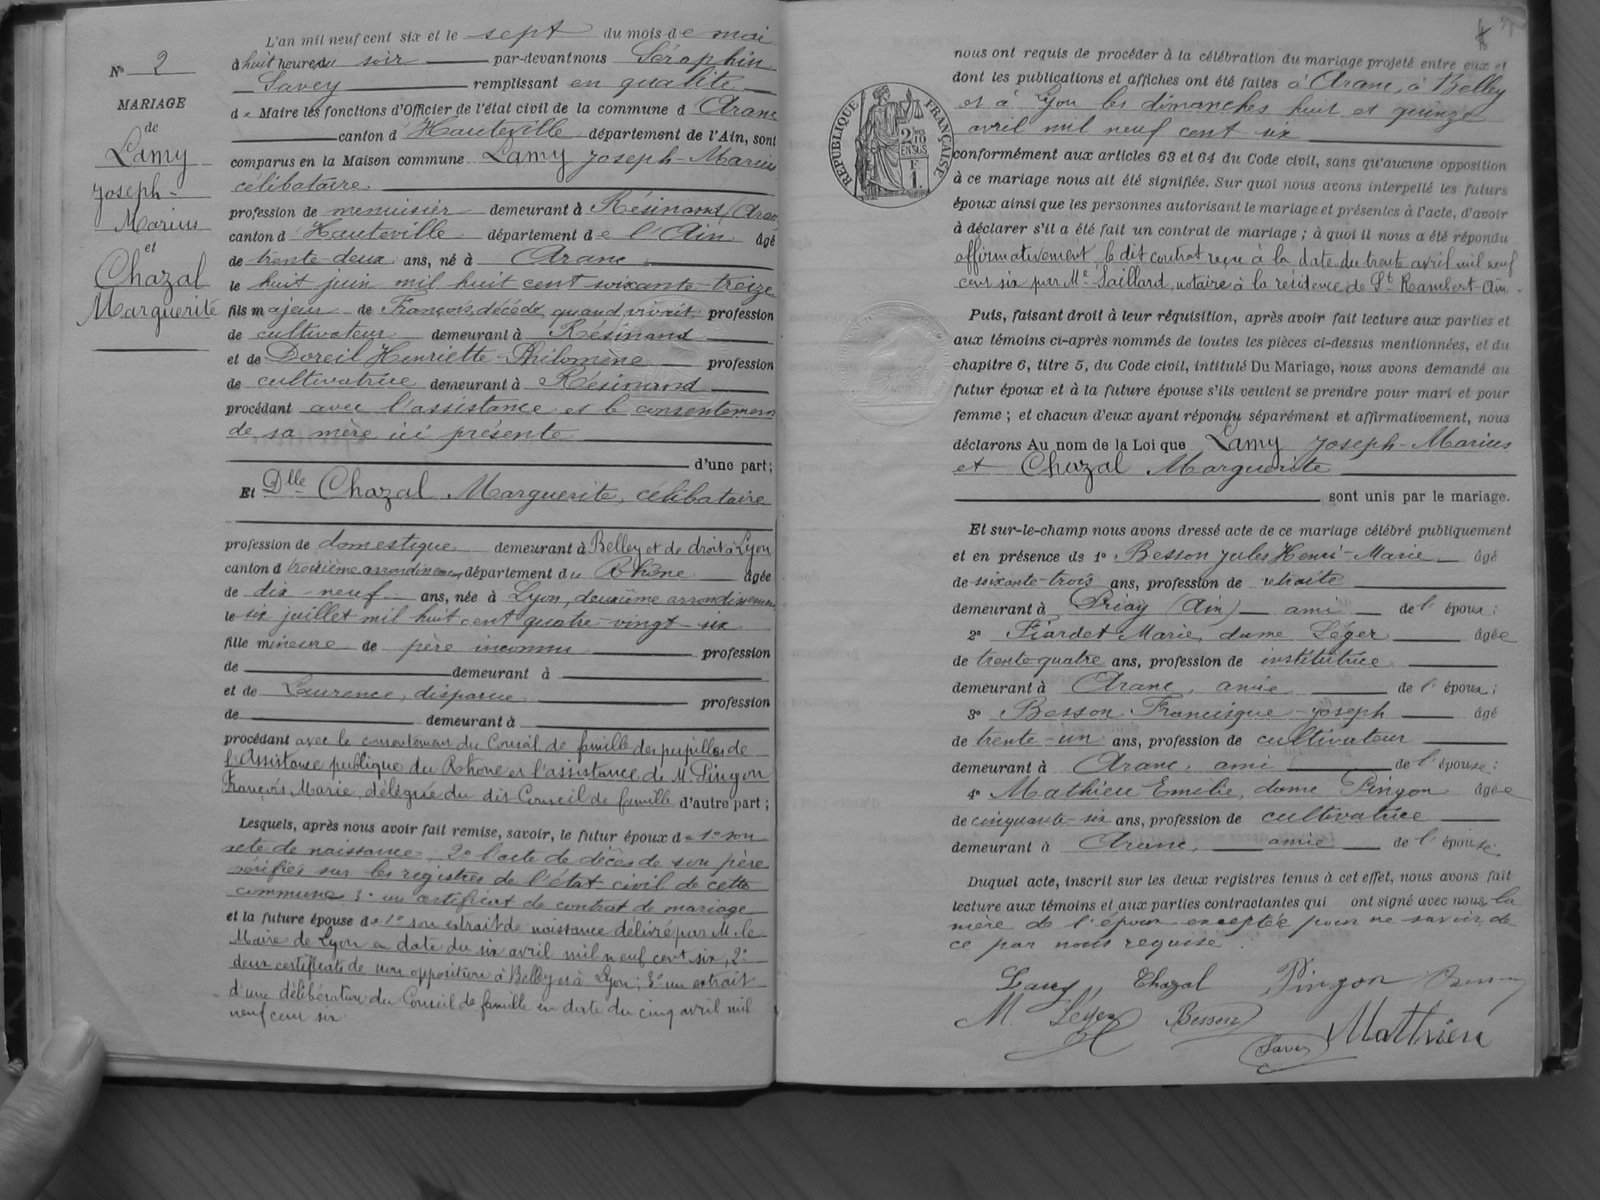 L'an mil neuf cent six et le sept du mois de mai
à huit heures du soir par-devant nous Séraphin
Savey remplissant en qualité
de Maire les fonctions d'Officier de l'état civil de la commune d Aranc
canton d Hauteville département de l'Ain, sont
comparus en la Maison commune Lamy Joseph-Marius
célibataire
profession de menuisier demeurant à Résinand (Aranc
canton d Hauteville département de l'Ain âgé
de trente-deux ans, né à Aranc
le huit juin mil huit cent soixante-treize
fils majeur de François, décédé, quand vivait profession
de cultivateur demeurant à Résinand
et de Doreil Henriette-Philomène profession
de cultivatrice demeurant à Résinand
procédant avec l'assistance et le consentement
de sa mère ici présente
d'une part;
Et Dlle Chazal Marguerite, célibataire
profession de domestique demeurant à Belley et de droit à Lyon
canton d troisième arrondissement, département du Rhône âgée
de dix-neuf ans, née à Lyon, deuxième arrondissement
le six juillet mil huit cent quatre-vingt-six
fille mineure de père inconnu profession
de demeurant à
et de Laurence, disparue profession
de demeurant à
procédant avec le consentement du Conseil de famille des pupilles de
l'Assistance publique du Rhône et l'assistance de M. Pingon
François Marie, délégué du dit Conseil de famille d'autre part;
Lesquels, après nous avoir fait remise, savoir, le futur époux de 1° son
acte de naissance, 2° l'acte de décès de son père
vérifiés sur les registres de l'état civil de cette
commune 3° un certificat de contrat de mariage
et la future épouse de 1° son extrait de naissance délivré par M. le
Maire de Lyon en date du six avril mil neuf cent six, 2°
deux certificats de non opposition à Belley et à Lyon; 3° un extrait
d'une délibération du Conseil de famille en date du cinq avril mil
neuf cent six
N° 2
MARIAGE
de
Lamy
Joseph-
Marius
et
Chazal
Marguerite
nous ont requis de procéder à la célébration du mariage projeté entre eux et
dont les publications et affiches ont été faites à Aranc, à Belley
et à Lyon les dimanches huit et quinze
avril mil neuf cent six
conformément aux articles 63 et 64 du Code civil, sans qu'aucune opposition
à ce mariage nous ait été signifiée. Sur quoi nous avons interpellé les futurs
époux ainsi que les personnes autorisant le mariage et présentes à l'acte, d'avoir
à déclarer s'il a été fait un contrat de mariage; à quoi il nous a été répondu
affirmativement, le dit contrat reçu à la date du trente avril mil neuf
cent six par Me Saillard, notaire à la résidence de St Rambert-Ain.
Puis, faisant droit à leur réquisition, après avoir fait lecture aux parties et
aux témoins ci-après nommés de toutes les pièces ci-dessus mentionnées, et du
chapitre 6, titre 5, du Code civil, intitulé Du Mariage, nous avons demandé au
futur époux et à la future épouse s'ils veulent se prendre pour mari et pour
femme; et chacun d'eux ayant répondu séparément et affirmativement, nous
déclarons Au nom de la Loi que Lamy Joseph-Marius
et Chazal Marguerite
sont unis par le mariage.
Et sur-le-champ nous avons dressé acte de ce mariage célébré publiquement
et en présence de 1° Besson Jules Henri-Marie âgé
de soixante-trois ans, profession de retraité
demeurant à Priay (Ain) ami de l'époux;
2° Piardet Marie, dame Léger âgée
de trente-quatre ans, profession de institutrice
demeurant à Aranc, amie de l'époux;
3° Besson Francisque-Joseph âgé
de trente-un ans, profession de cultivateur
demeurant à Aranc, ami de l'épouse;
4° Mathieu Emilie, dame Pingon âgée
de cinquante-six ans, profession de cultivatrice
demeurant à Aranc, amie de l'épouse
Duquel acte, inscrit sur les deux registres tenus à cet effet, nous avons fait
lecture aux témoins et aux parties contractantes qui ont signé avec nous, la
mère de l'époux exceptée pour ne savoir de
ce par nous requise.
Lamy Chazal Pingon Besson
M. Léger Besson Mathieu
Savey
RÉPUBLIQUE FRANÇAISE
2/10 EN SUS
F
1.